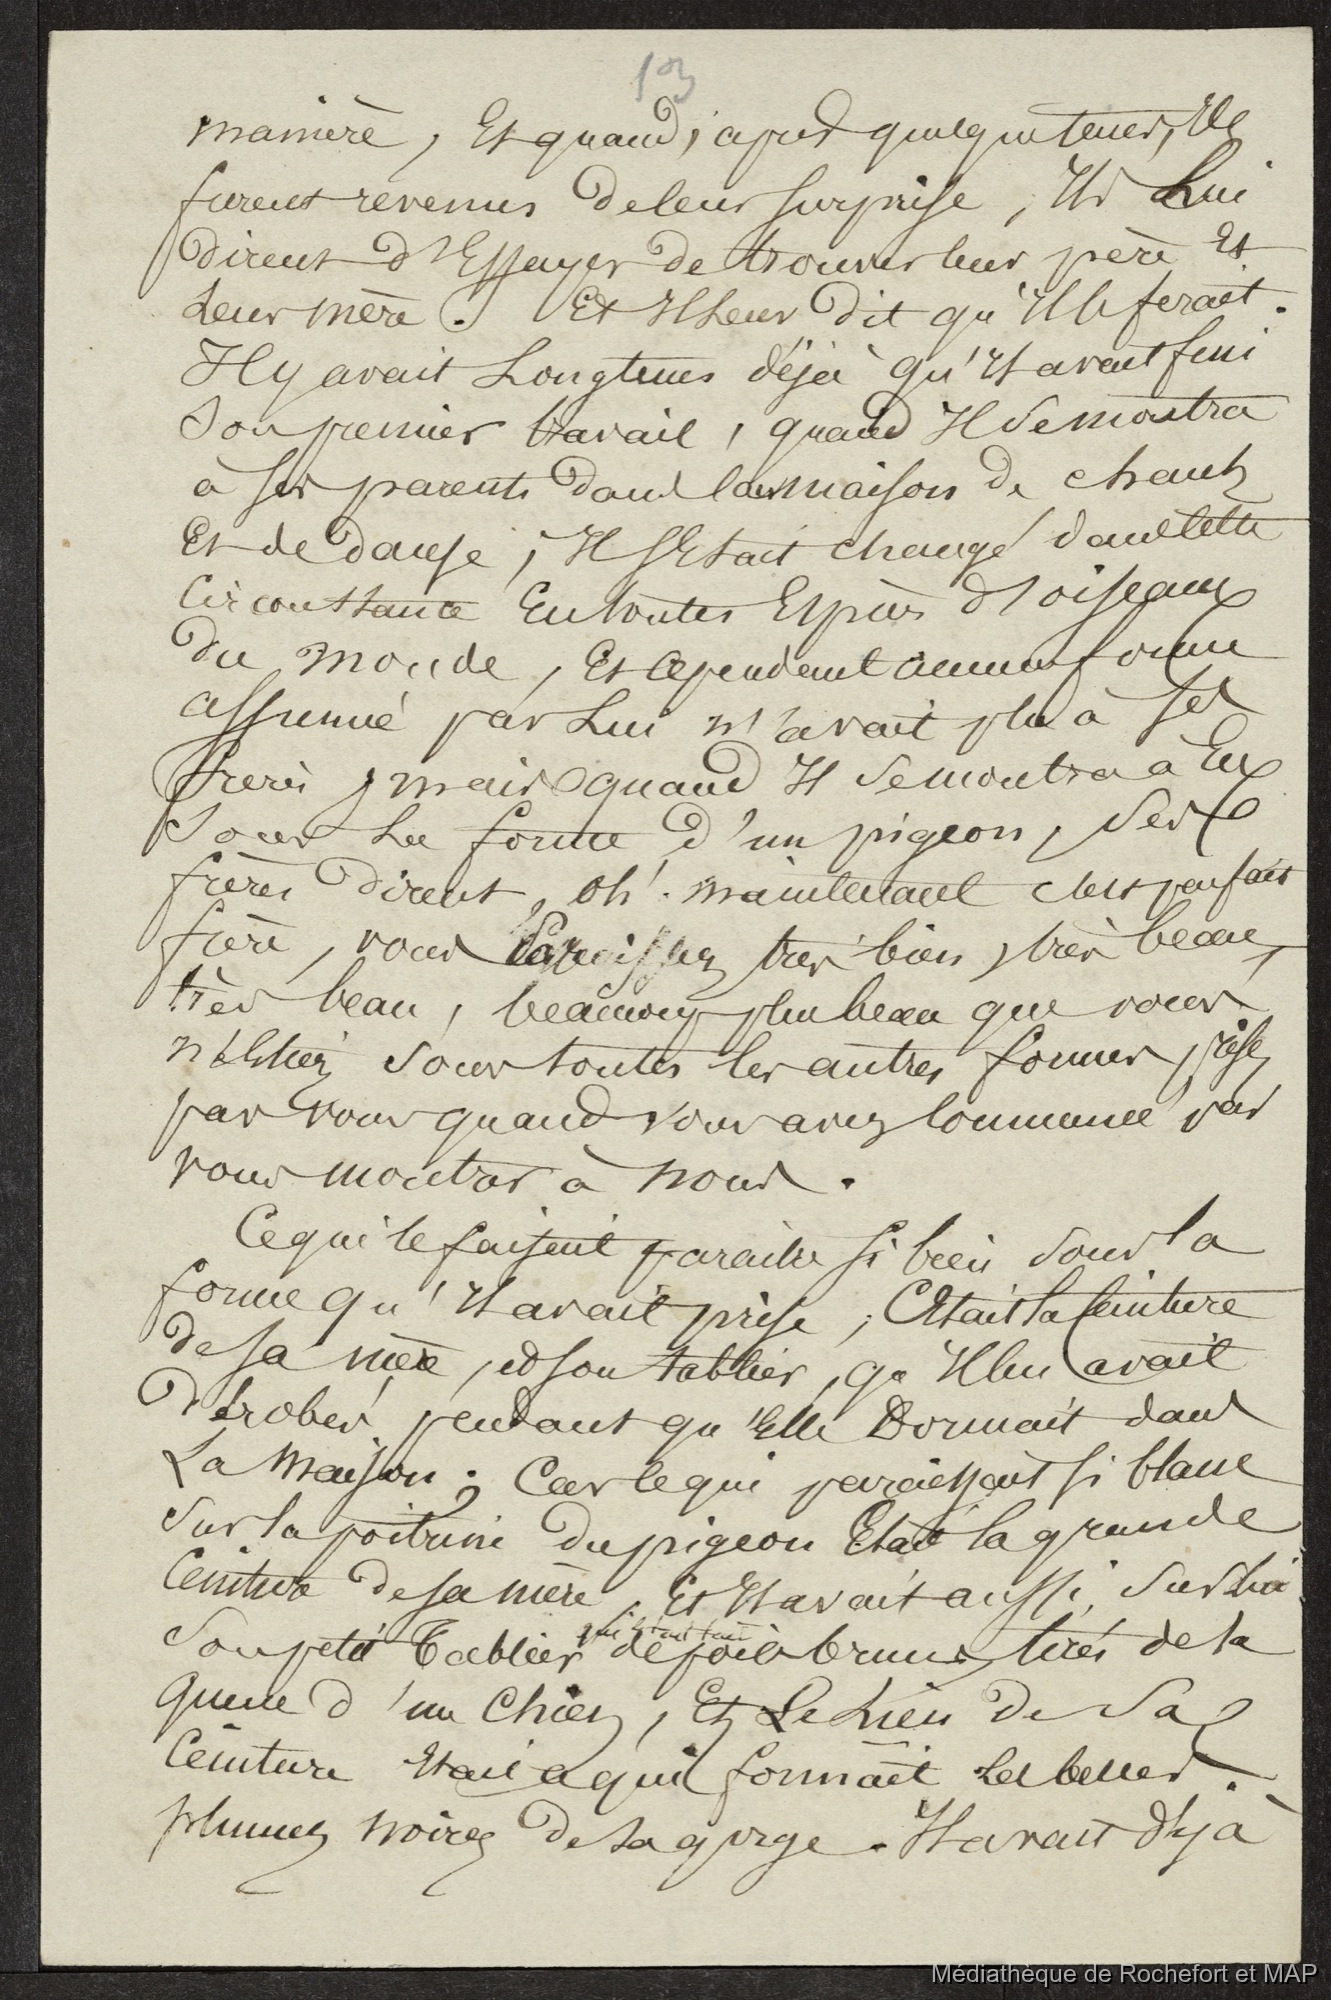 13
manière, Et quand, après quelque tems, Ils
furent revenus de leur surprise, Ils Lui
dirent d'Essayer de trouver leur père Et
Leur mère. Et Il Leur dit qu'Il le ferait.
Il y avait Longtems déjà qu'Il avait fini
Son premier travail, quand Il se montra
à ses parents dans la maison de chants
Et de danse; Il s'Etait changé dans cette
Circonstance En toutes Espèces d'oiseaux
du monde, Et cependant aucune forme
assumé par Lui n'avait plu à ses
frères, mais quand Il se montra à Eux
Sous La forme d'un pigeon, Ses
frères dirent, oh! maintenant c'est parfait
frère, vous paraissez très bien, très beau,
très beau, beaucoup plus beau que vous
n'étiez sous toutes les autres formes prises
par vous quand vous avez commencé par
vous montrer à nous.
Ce qui le faisait paraître si bien sous la
forme qu'Il avait prise, C'était la Ceinture
de sa mère, et son tablier, qu'Il lui avait
dérobés pendant qu'Elle Dormait dans
La Maison; Car ce qui paraissait si blanc
sur la poitrine du pigeon Etait la grande
Ceinture de sa mère, Et Il avait aussi, sur lui
Son petit Tablier qui était fait de poils bruns, tirés de la
queue d'un Chien, Et Le Lien de Sa
Ceinture était ce qui formait Les belles
plumes noires de sa gorge. Il avait déjà
Médiathèque de Rochefort et MAP